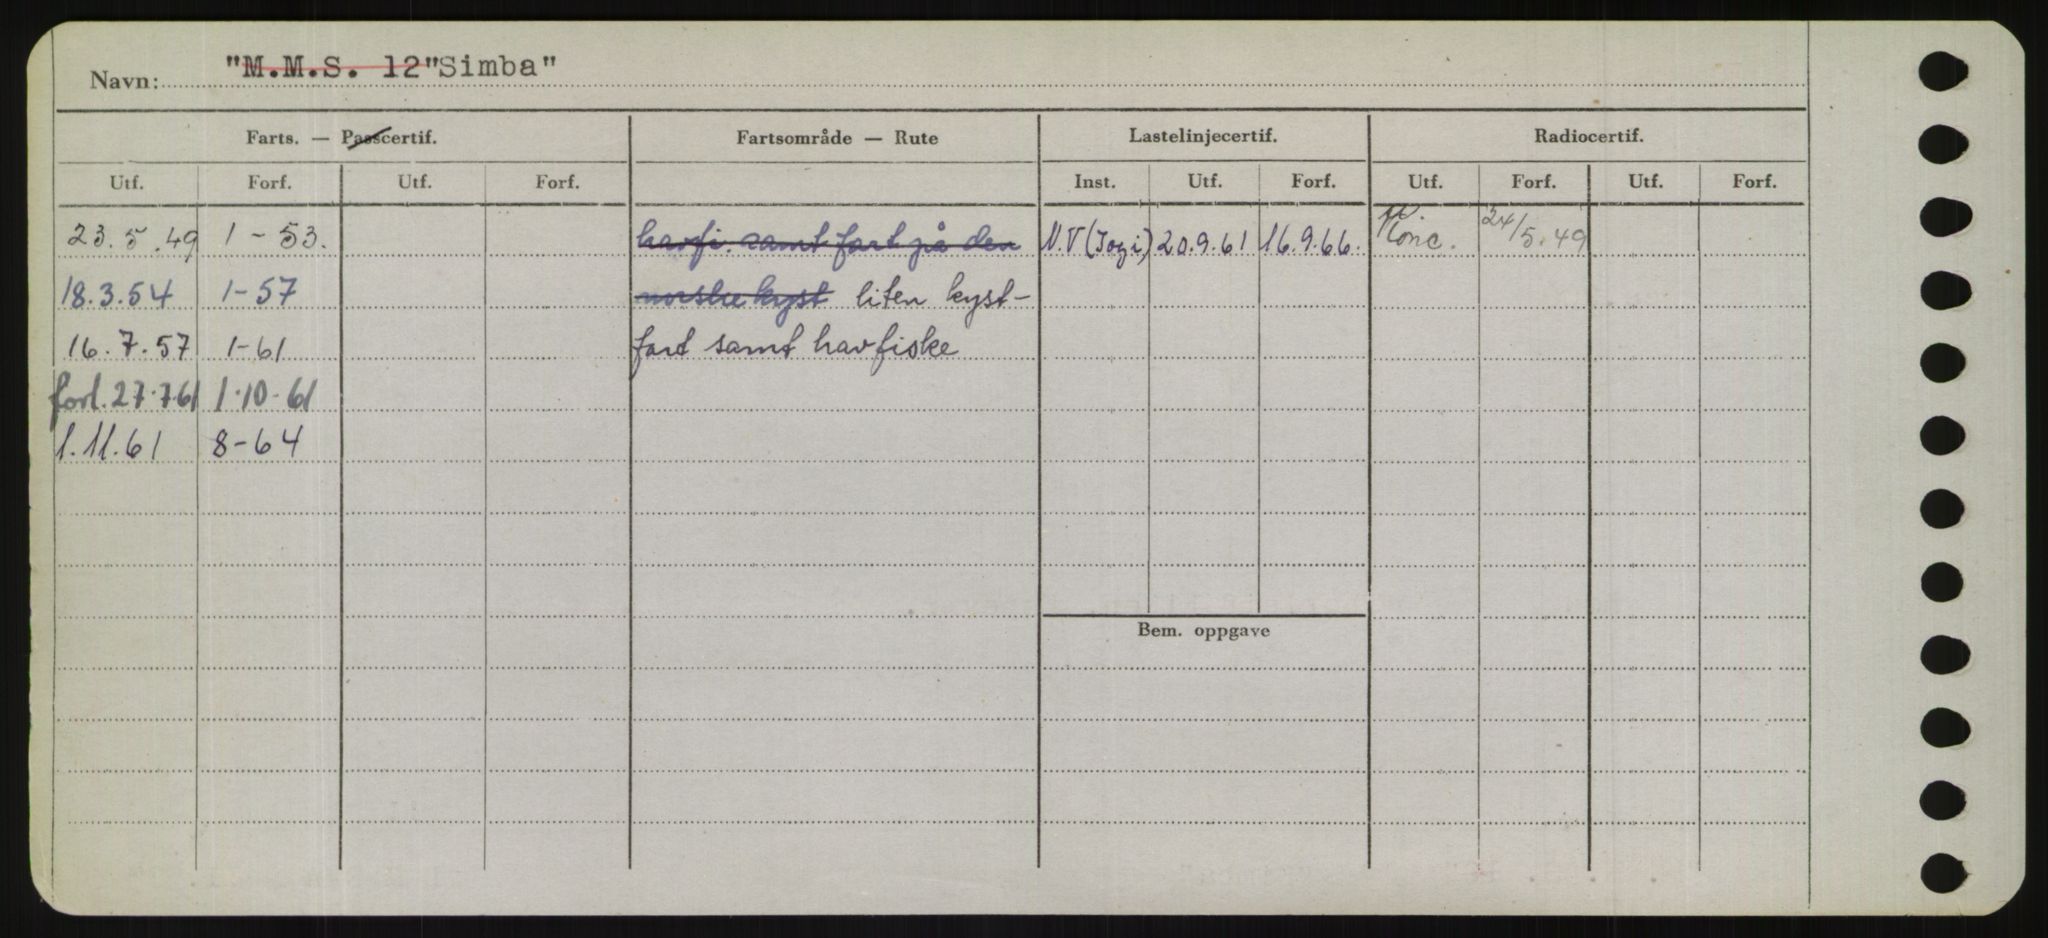 Navn: "M.M.S. 12" Simba"
Farts. — Passcertif. Fartsområde — Rute Lastelinjecertif. Radiocertif.
Utf. Forf. Utf. Forf. Inst. Utf. Forf. Utf. Forf. Utf. Forf.
23.5.49 1-53. havfi. samt fart på den N.V 20.9.61 16.9.66. Konc. 24/5.49
18.3.54 1-57 norske kyst liten kyst-
16.7.57 1-61 fart samt havfiske
forl. 27.7.61 1.10.61
1.11.61 8-64
Bem. oppgave